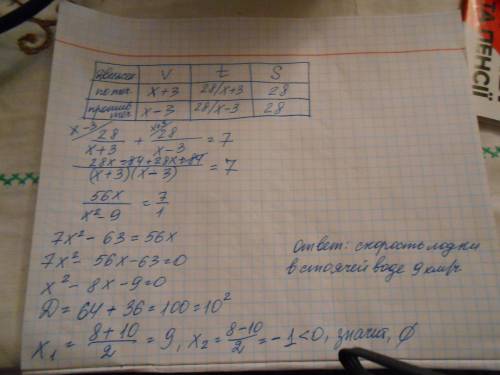 ТА ПЕНСІЇ
движен V t S
по теч x+3 28/x+3 28
против теч x-3 28/x-3 28
x-3/ 28/(x+3) + x+3/ 28/(x-3) = 7
(28x-84+28x+84)/((x+3)(x-3)) = 7
56x/(x²-9) = 7/1
7x²-63=56x
7x²-56x-63=0
x²-8x-9=0
D=64+36=100=10²
x₁ = (8+10)/2 = 9, x₂ = (8-10)/2 = -1<0, значит, ∅
Ответ: скорость лодки
в стоячей воде 9 км/ч